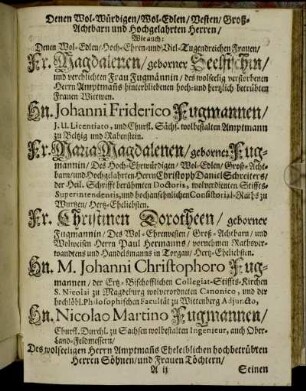 Denen Wol-Würdigen/ Wol-Edlen/ Vesten/ Groß-
Achtbarn und Hochgelahrten Herren/
Wie auch:
Denen Wol-Edlen/ Hoch-Ehren- und Viel-Tugendreichen Frauen/
Fr. Magdalenen/ geborner Sechsischin/
und verehlichten Frau Fugmännin/ des wolseelig verstorbenen
Herrn Amptmanns hinterbliebenen hoch- und hertzlich betrübten
Frauen Wittwen.
Hn. Johanni Friderico Fugmannen/
J. U. Licentiato, und Churfl. Sächs. wolbestalten Amptmann
zu Beltzig und Rabenstein.
Fr. Maria Magdalenen/ geborner Fug-
mannin/ Des Hoch-Ehrwürdigen/ Wol-Edlen/ Groß-Acht-
barn/ und Hochgelahrten Herrn Christoph Daniel Schreiters/
der Heil. Schrifft berühmten Doctoris, wolverdienten Stiffts-
Superintendentis, und hochansehnlichen Consistorial-Raths zu
Wurtzen/ Hertz-Ehelichsten.
Fr. Christinen Dorotheen/ geborner
Fugmannin/ Des Wol-Ehrenvesten/ Groß-Achtbarn/ und
Wolweisen Herrn Paul Hermanns/ vornehmen Rathsver-
wandtens und Handelsmanns in Torgau/ Hertz-Ehelichsten.
Hn. M. Johanni Christophoro Fug-
mannen/ der Ertz-Bischofflichen Collegiat-Stiffts-Kirchen
S. Nicolai zu Magdeburg wolverordneten Canonico, und der
hochlöbl. Philosophischen Facultät zu Wittenberg Adjuncto,
Hn. Nicolao Martino Fugmannen/
Churfl. Durchl. zu Sachsen wolbestalten Ingenieur, auch Ober-
Land-Feldmessern/
Des wolseeligen Herrn Amptmanns Eheleiblichen hochbetrübten
Herren Söhnen/ und Frauen Töchtern/
A ij Seinen